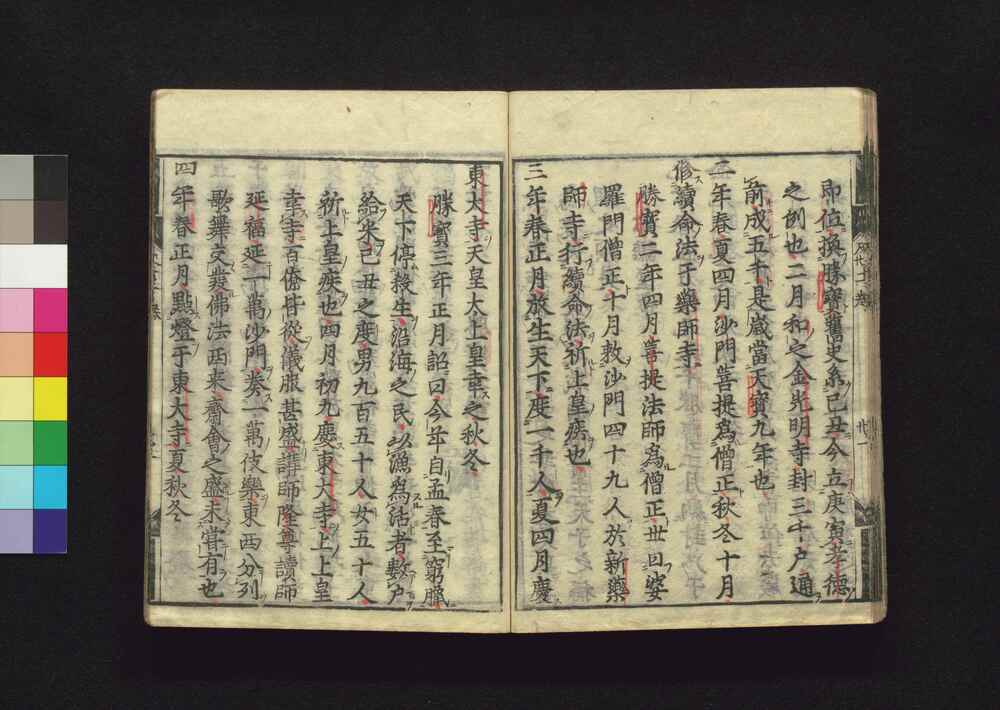 即位換勝寶舊史系己丑今立庚寅孝德
之例也二月和之金光明寺封三千戶通
前成五千是歲當天寶九年也
二年春夏四月沙門菩提爲僧正秋冬十月
修續命法于藥師寺
勝寶二年四月菩提法師爲僧正世曰婆
羅門僧正十月敕沙門四十九人於新藥
師寺行續命法祈上皇疾也
三年春正月放生天下度一千人夏四月慶
東大寺天皇太上皇幸之秋冬
勝寶三年正月詔曰今年自孟春至窮臘
天下停殺生沿海之民以漁爲活者數戶
給米己丑之度男九百五十人女五十人
祈上皇疾也四月初九慶東大寺上上皇
幸寺百僚皆從儀服甚盛講師隆尊讀師
延福延一萬沙門奏一萬伎樂東西分列
歌舞交發佛法西來齋會之盛未嘗有也
四年春正月點燈于東大寺夏秋冬